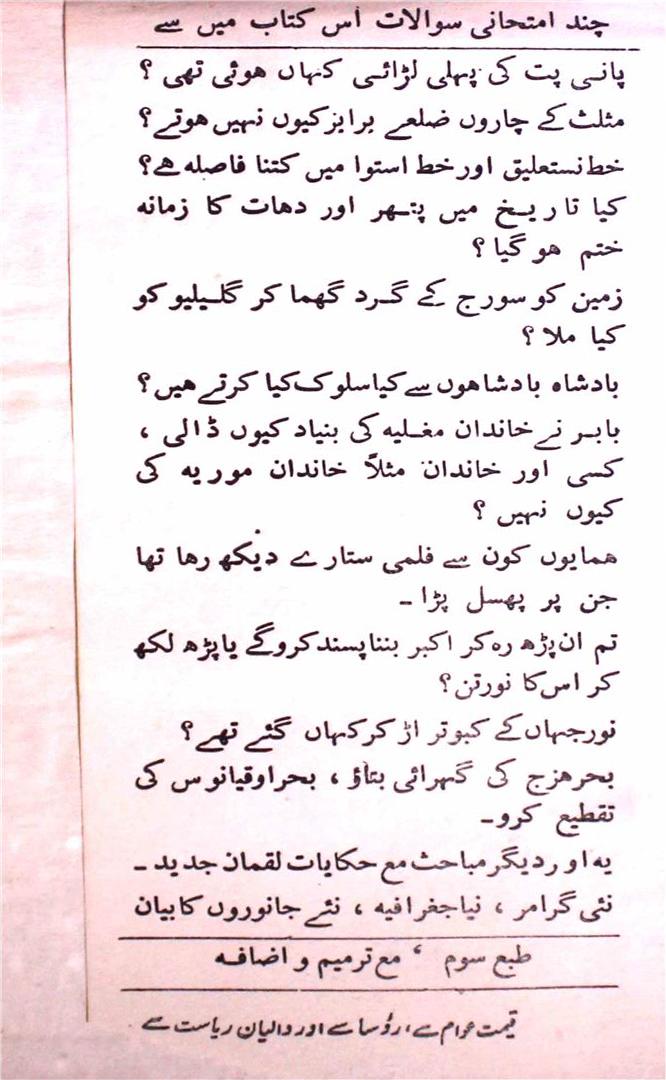 چند امتحانی سوالات اس کتاب میں سے
پانی پت کی پہلی لڑائی کہاں ہوئی تھی ؟
مثلث کے چاروں ضلعے برابر کیوں نہیں ہوتے ؟
خط نستعلیق اور خط استوا میں کتنا فاصلہ ہے ؟
کیا تاریخ میں پتھر اور دھات کا زمانہ
ختم ہو گیا ؟
زمین کو سورج کے گرد گھما کر گلیلیو کو
کیا ملا ؟
بادشاہ بادشاہوں سے کیا سلوک کیا کرتے ہیں ؟
بابر نے خاندان مغلیہ کی بنیاد کیوں ڈالی ،
کسی اور خاندان مثلاً خاندان موریہ کی
کیوں نہیں ؟
ہمایوں کون سے فلمی ستارے دیکھ رہا تھا
جن پر پھسل پڑا ۔
تم ان پڑھ رہ کر اکبر بننا پسند کرو گے یا پڑھ لکھ
کر اس کا نورتن ؟
نورجہاں کے کبوتر اڑ کر کہاں گئے تھے ؟
بحر ہزج کی گہرائی بتاؤ ، بحر اوقیانوس کی
تقطیع کرو ۔
یہ اور دیگر مباحث مع حکایات لقمان جدید ۔
نئی گرامر ، نیا جغرافیہ ، نئے جانوروں کا بیان
طبع سوم ، مع ترمیم و اضافہ
قیمت عوام سے ، رؤسا سے اور والیان ریاست سے